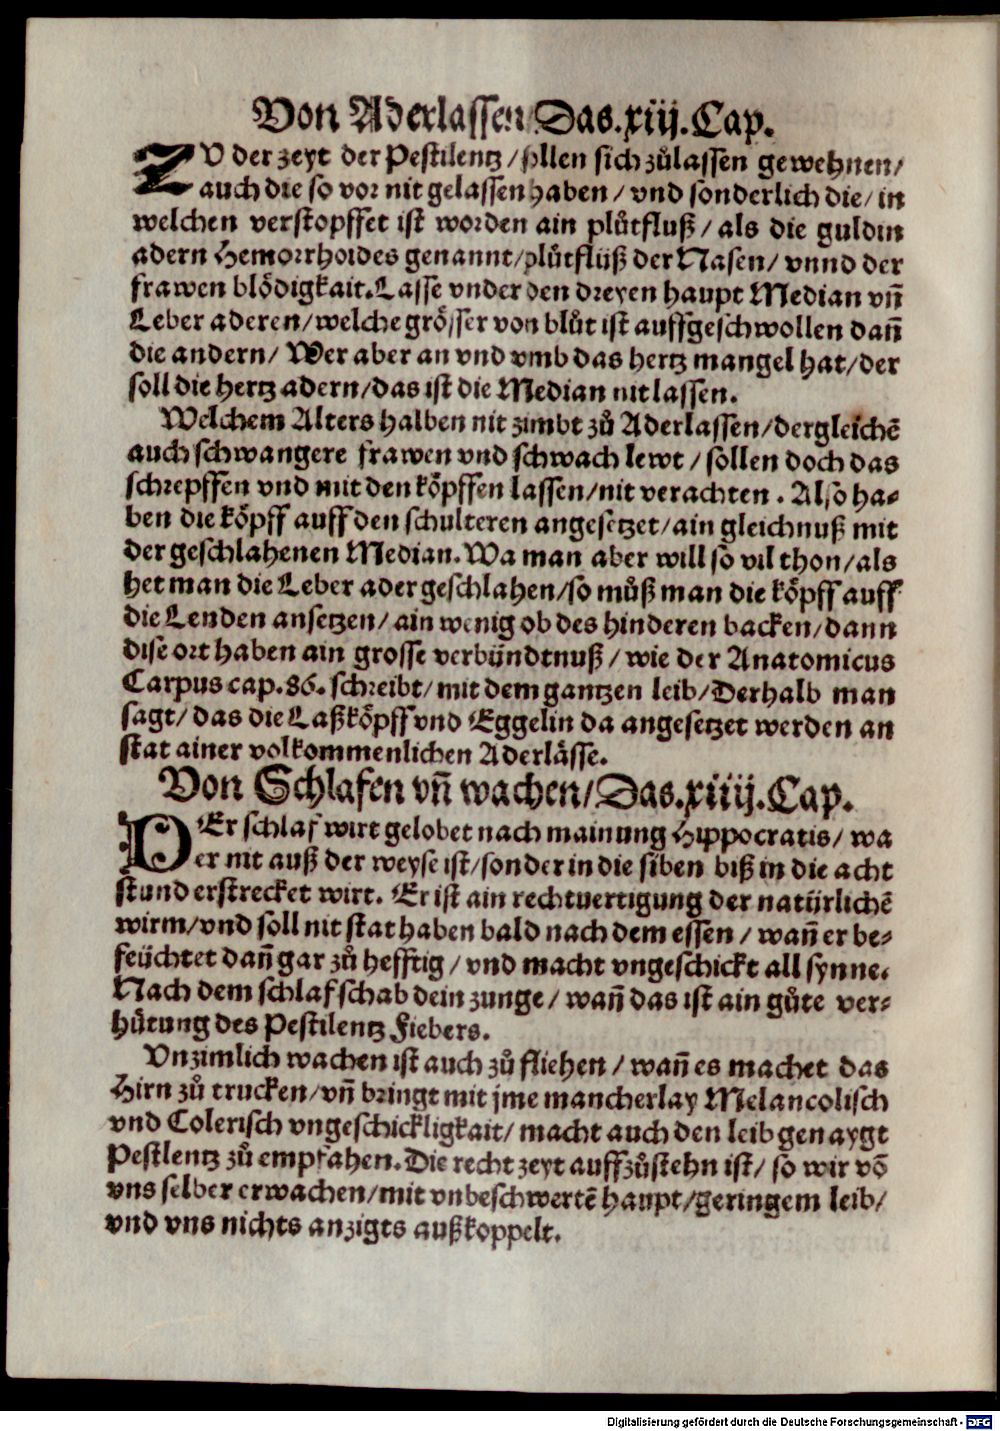 Von Aderlassen/Das.xiij.Cap.
ZV der zeyt der Pestilentz/sollen sich zůlassen gewehnen/
auch die so vor nit gelassen haben/ vnd sonderlich die/ in
welchen verstopffet ist worden ain plůtfluß/ als die guldin
adern Hemorrhoides genannt/plůtflüß der Nasen/ vnnd der
frawen blödigkait.Lasse vnder den dreyen haupt Median vn̄
Leber aderen/welche grösser von blůt ist auffgeschwollen dan̄
die andern/ Wer aber an vnd vmb das hertz mangel hat/der
soll die hertz adern/das ist die Median nit lassen.
Welchem Alters halben nit zimbt zů Aderlassen/dergleichē
auch schwangere frawen vnd schwach lewt/ sollen doch das
schrepffen vnd mit den köpffen lassen/nit verachten. Also ha-
ben die köpff auff den schulteren angesetzet/ain gleichnuß mit
der geschlahenen Median.Wa man aber will so vil thon/als
het man die Leber ader geschlahen/so můß man die köpff auff
die Lenden ansetzen/ ain wenig ob des hinderen backen/dann
dise ort haben ain grosse verbündtnuß/ wie der Anatomicus
Carpus cap.86. schreibt/ mit dem gantzen leib/Derhalb man
sagt/ das die Laßköpff vnd Eggelin da angesetzet werden an
stat ainer volkommenlichen Aderlässe.
Von Schlafen vn̄ wachen/Das.xiiij.Cap.
DEr schlaf wirt gelobet nach mainung Hippocratis/ wa
er nit auß der weyse ist/sonder in die siben biß in die acht
stund erstrecket wirt. Er ist ain rechtuertigung der natürlichē
wirm/vnd soll nit stat haben bald nach dem essen/ wan̄ er be-
feüchtet dan̄ gar zů hefftig/ vnd macht vngeschickt all synne.
Nach dem schlaf schab dein zunge/ wan̄ das ist ain gůte ver-
hütung des Pestilentz Fiebers.
Vnzimlich wachen ist auch zů fliehen/ wan̄ es machet das
Hirn zů trucken/vn̄ bringt mit jme mancherlay Melancolisch
vnd Colerisch vngeschickligkait/ macht auch den leib genaygt
Pestlentz zů empfahen.Die recht zeyt auffzůstehn ist/ so wir vō
vns selber erwachen/mit vnbeschwertē haupt/geringem leib/
vnd vns nichts anzigts außkoppelt.
Digitalisierung gefördert durch die Deutsche Forschungsgemeinschaft - DFG